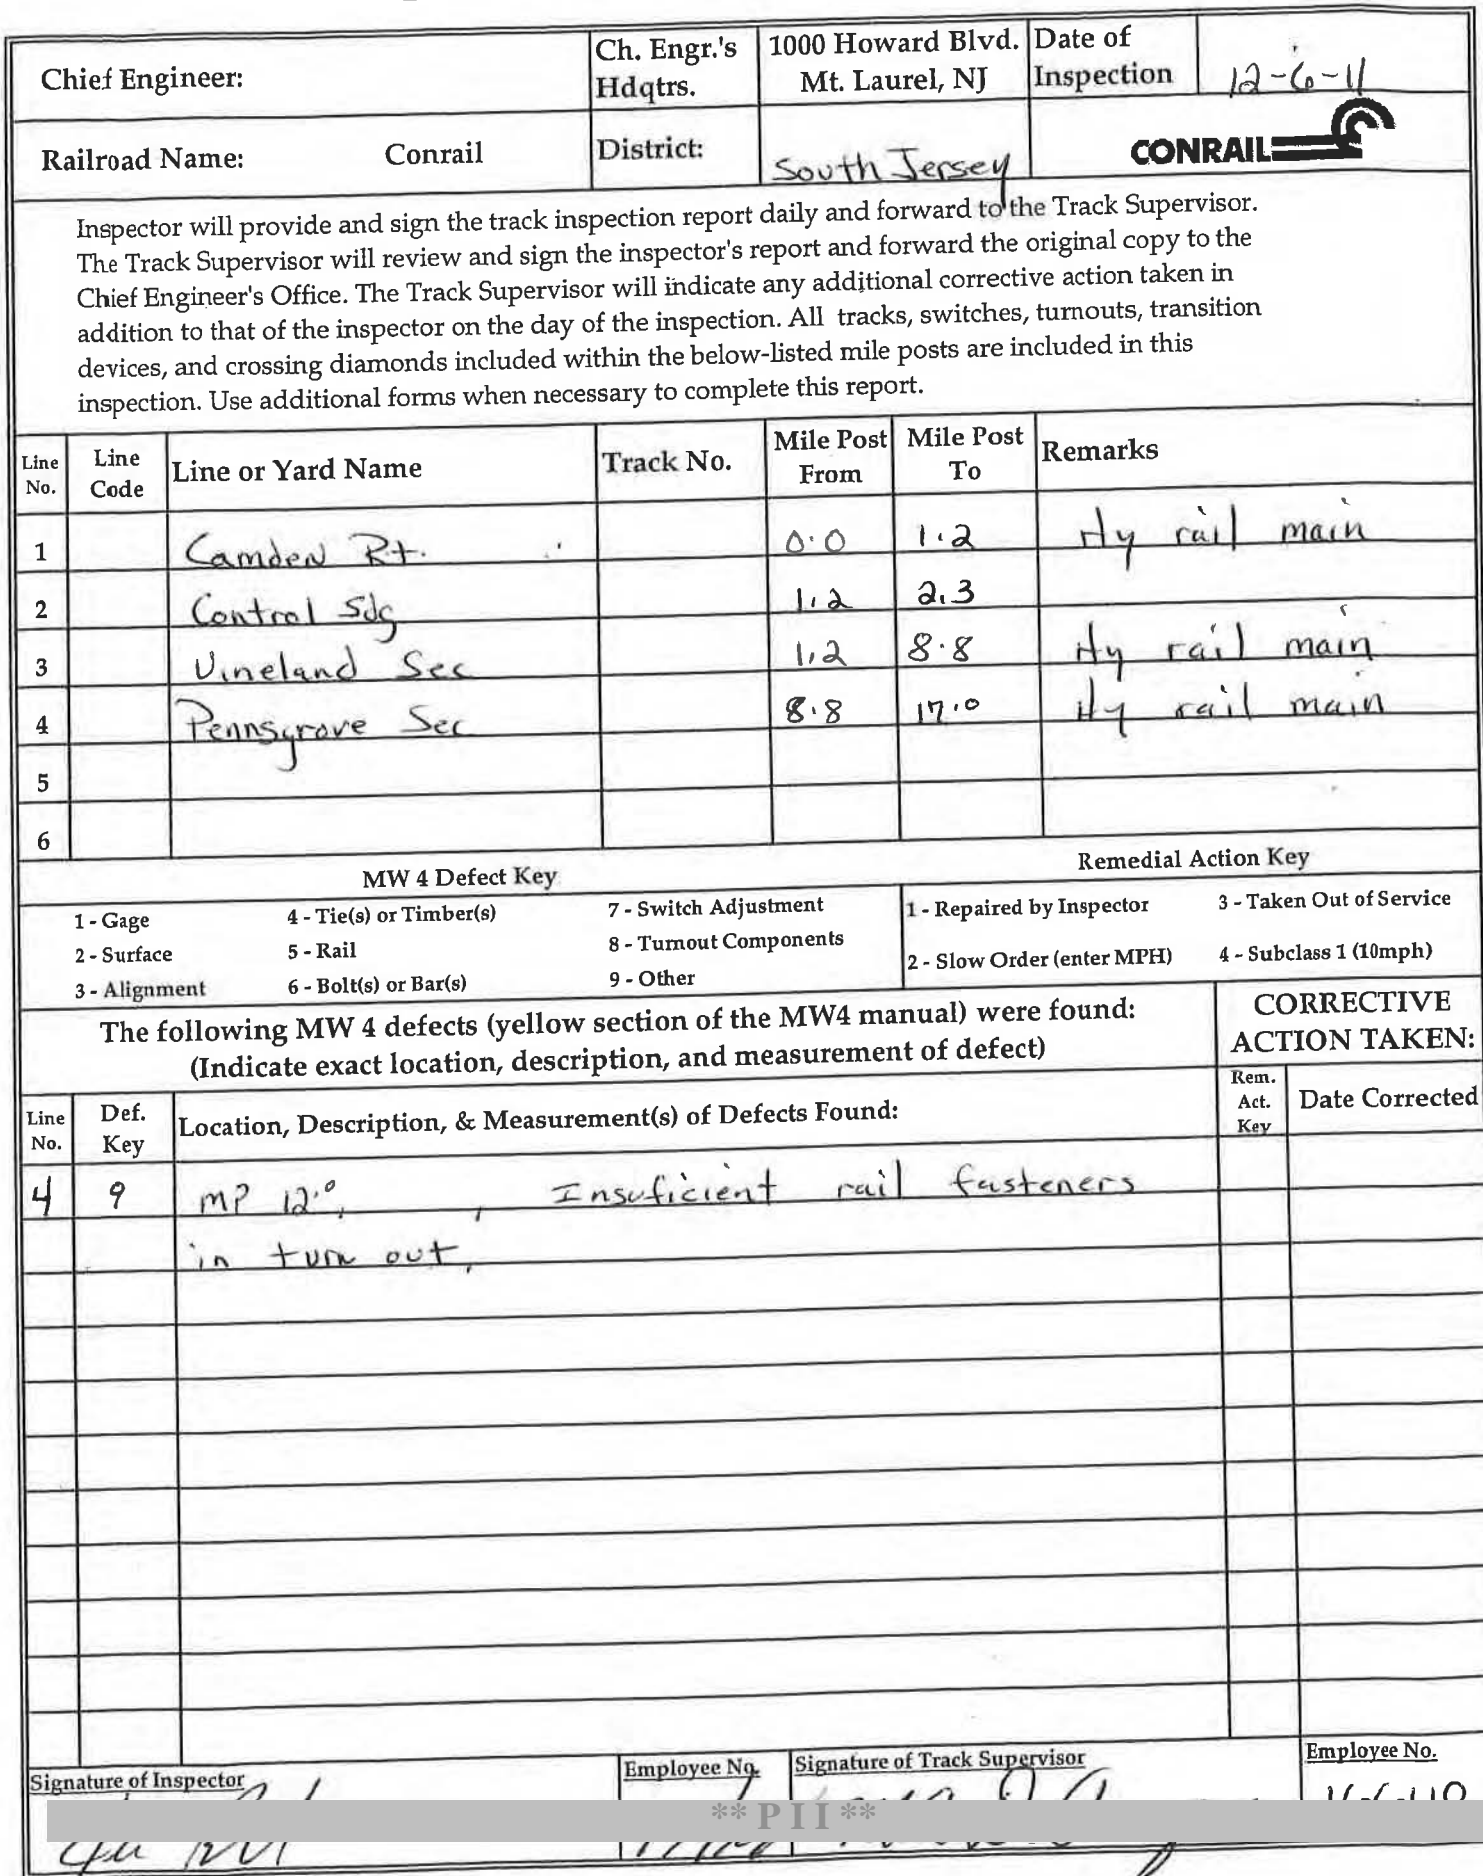 Chief Engineer:
Ch. Engr.'s Hdqtrs.
1000 Howard Blvd. Mt. Laurel, NJ
Date of Inspection
12-6-11
Railroad Name: Conrail
District:
South Jersey
CONRAIL
Inspector will provide and sign the track inspection report daily and forward to the Track Supervisor.
The Track Supervisor will review and sign the inspector's report and forward the original copy to the
Chief Engineer's Office. The Track Supervisor will indicate any additional corrective action taken in
addition to that of the inspector on the day of the inspection. All tracks, switches, turnouts, transition
devices, and crossing diamonds included within the below-listed mile posts are included in this
inspection. Use additional forms when necessary to complete this report.
Line No. Line Code Line or Yard Name Track No. Mile Post From Mile Post To Remarks
1 Camden Rt. 0.0 1.2 Hy rail main
2 Control Sdg 1.2 2.3
3 Vineland Sec 1.2 8.8 Hy rail main
4 Pennsgrove Sec 8.8 17.0 Hy rail main
5
6
MW 4 Defect Key Remedial Action Key
1 - Gage 4 - Tie(s) or Timber(s) 7 - Switch Adjustment 1 - Repaired by Inspector 3 - Taken Out of Service
2 - Surface 5 - Rail 8 - Turnout Components 2 - Slow Order (enter MPH) 4 - Subclass 1 (10mph)
3 - Alignment 6 - Bolt(s) or Bar(s) 9 - Other
The following MW 4 defects (yellow section of the MW4 manual) were found:
(Indicate exact location, description, and measurement of defect)
CORRECTIVE
ACTION TAKEN:
Line No. Def. Key Location, Description, & Measurement(s) of Defects Found: Rem. Act. Key Date Corrected
4 9 MP 12.0, , Insuficient rail fasteners
in turn out,
Signature of Inspector Employee No. Signature of Track Supervisor Employee No.
** P I I **